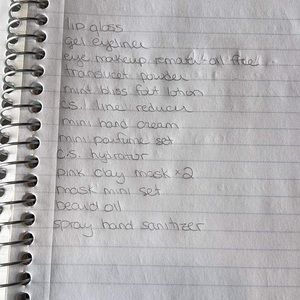 lip gloss
gel eyeliner
eye makeup remover-oil free
translucet powder
mint bliss foot lotion
C.S. line reducer
mini hand cream
mini parfume set
C.S. hydrator
pink clay mask x2
mask mini set
beard oil
spray hand sanitizer